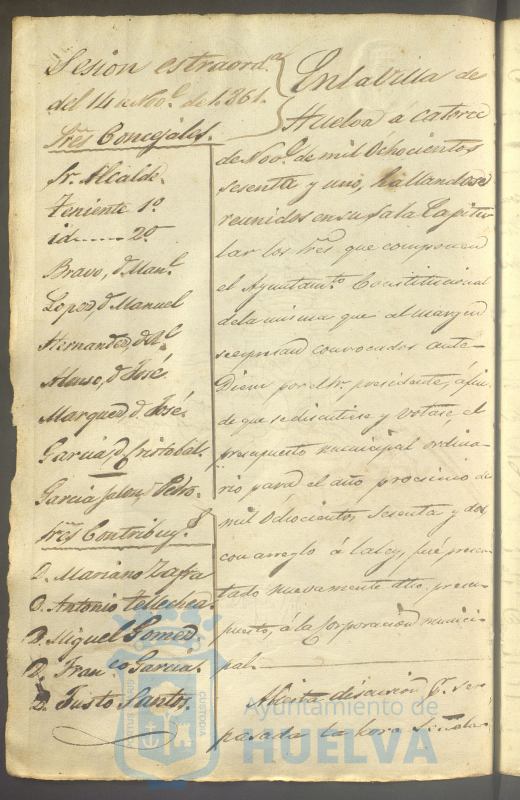 Sesion estraord.ª
del 14 de Nov.e de 1861.
Sres Concejales.
Sr. Alcalde.
Teniente 1º
id....... 2º
Bravo, d. Man.l
Lopez, d. Manuel
Hernandez, d.
Alonso, d. José
Marquez, d. José.
Garcia, d. Cristobal.
Garcia Jalon, Pedro.
Sres Contribuy.s
D. Mariano Zafra
D. Antonio Tellechea.
D. Miguel Gomez.
D. Fran.co Garcia.
D. Justo Santos.
En la Villa de
Huelva á catorce
de Nov.e de mil Ochocientos
sesenta y uno, hallandose
reunidos en su Sala Capitu-
lar los Sres que componen
el Ayuntam.to Constitucional
de la misma que al margen
se espresan convocados ante-
Diem por el Sr. presidente, á fin
de que se discutiese y votase, el
presupuesto municipal ordina-
rio para el año procsimo de
mil Ochocientos sesenta y dos
con arreglo á la ley, fué presen-
tado nuevamente dho. presu-
puesto, á la Corporacion munici-
pal.
Abierta discusion p.r ser
pasada la hora señala-
PORTUS MARIS
CUSTODIA
Ayuntamiento de
HUELVA